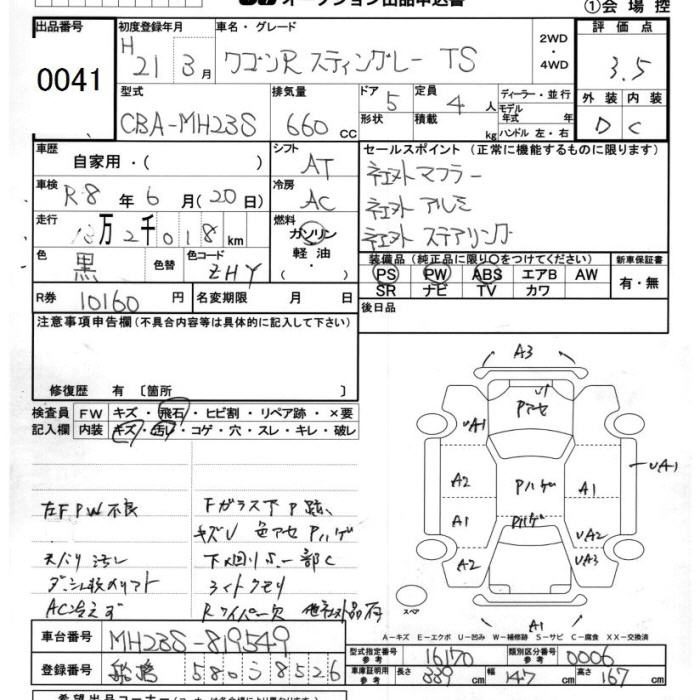 オークション出品申込書
①会場控
出品番号 0041
初度登録年月 H 21 3月
車名・グレード ワゴンR スティングレー TS
2WD・4WD
評価点 3.5
外装 内装
D C
型式 CBA-MH23S
排気量 660 cc
ドア 5
形状
定員 4人
積載 kg
ディーラー・並行
モデル年式 年
ハンドル 左・右
車歴 自家用・( )
シフト AT
セールスポイント(正常に機能するものに限ります)
社外マフラー
社外アルミ
社外ステアリング
車検 R8年6月(20日)
冷房 AC
走行 万2千018km
燃料 ガソリン 軽油・( )
色 黒
色替
色コード ZHY
装備品(純正品に限り○をつけてください)
PS PW ABS エアB AW
SR ナビ TV カワ
新車保証書 有・無
R券 10160円
名変期限 月 日
後日品
注意事項申告欄(不具合内容等は具体的に記入して下さい)
修復歴 有〔箇所 〕
検査員記入欄
FW キズ・飛石・ヒビ割・リペア跡・×要
内装 キズ・汚れ・コゲ・穴・スレ・キレ・破レ
左FPW不良
天バリ汚レ
AC冷えず
Fガラス下P跡、
キズU 色アセ Pハゲ
下回りS.一部C
ライトクモリ
Rワイパー欠
A3
U1
Pアセ
UA1
A2
Pハゲ
A1
UA1
A1
Pハゲ
UA2
A2
UA3
スペア
A1
A-キズ E-エクボ U-凹み W-補修跡 S-サビ C-腐食 XX-交換済
車台番号 MH23S-819549
登録番号 580 8526
型式指定番号 参考 16170
類別区分番号 参考 0006
車庫証明用 参考 長さ 339cm 幅 147cm 高さ 167cm
希望出品コーナー